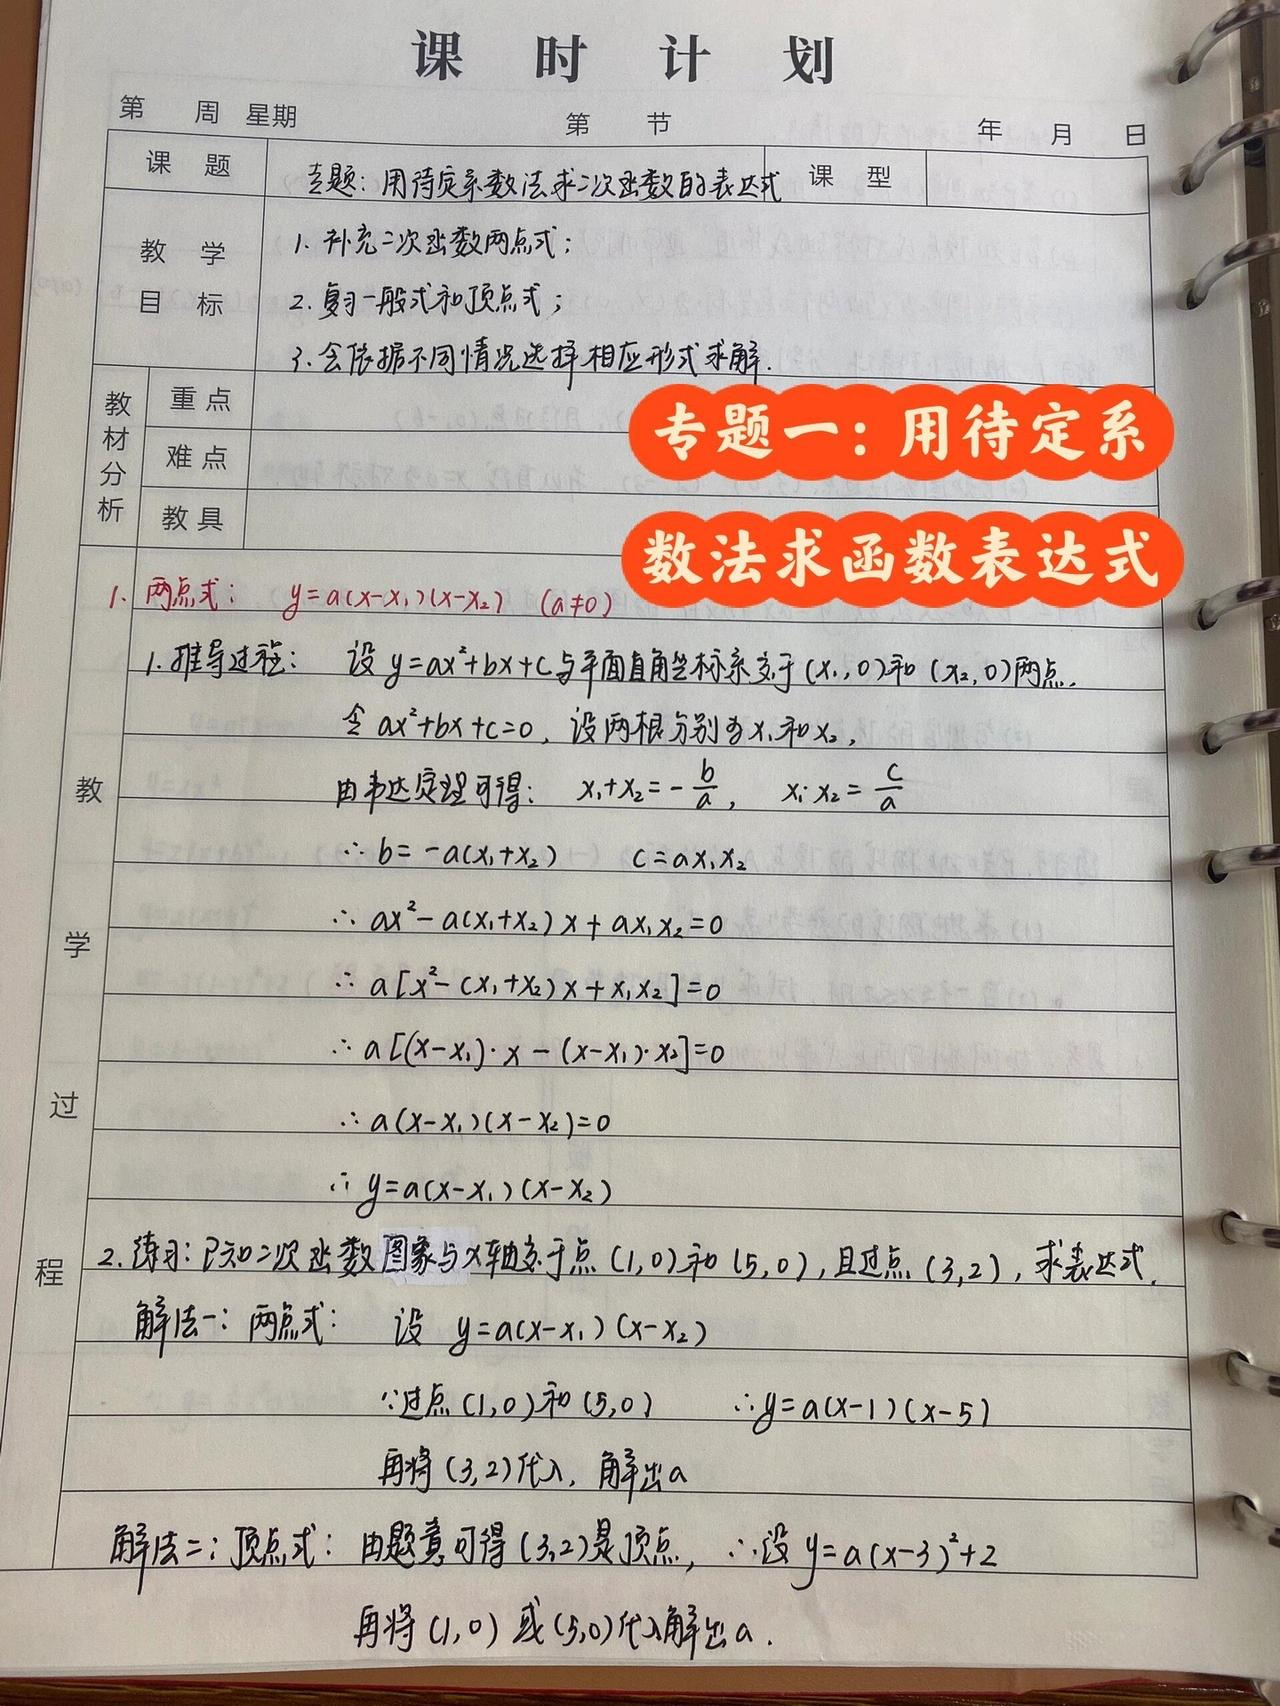 课时计划
第 周 星期 第 节 年 月 日
课题 专题：用待定系数法求二次函数的表达式 课型
教学目标
1. 补充二次函数两点式；
2. 复习一般式和顶点式；
3. 会依据不同情况选择相应形式求解.
教材分析
重点
难点
教具
专题一：用待定系
数法求函数表达式
教学过程
1. 两点式： y=a(x-x₁)(x-x₂) (a≠0)
1. 推导过程： 设 y=ax²+bx+c与平面直角坐标系交于(x₁,0)和(x₂,0)两点.
令 ax²+bx+c=0，设两根分别为x₁和x₂，
由韦达定理可得： x₁+x₂=-b/a， x₁·x₂=c/a
∴ b=-a(x₁+x₂) c=ax₁x₂
∴ ax²-a(x₁+x₂)x+ax₁x₂=0
∴ a[x²-(x₁+x₂)x+x₁x₂]=0
∴ a[(x-x₁)·x-(x-x₁)·x₂]=0
∴ a(x-x₁)(x-x₂)=0
∴ y=a(x-x₁)(x-x₂)
2. 练习：已知二次函数图象与x轴交于点(1,0)和(5,0)，且过点(3,2)，求表达式.
解法一：两点式： 设 y=a(x-x₁)(x-x₂)
∵过点(1,0)和(5,0) ∴y=a(x-1)(x-5)
再将(3,2)代入，解出a
解法二：顶点式：由题意可得(3,2)是顶点，∴设y=a(x-3)²+2
再将(1,0)或(5,0)代入解出a.